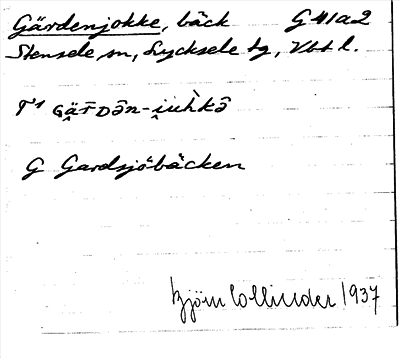 Gärdenjokke, bäck G 41a2
Stensele sn, Lycksele tg, Vbt l.
G Gardsjöbäcken
Björn Collinder 1937